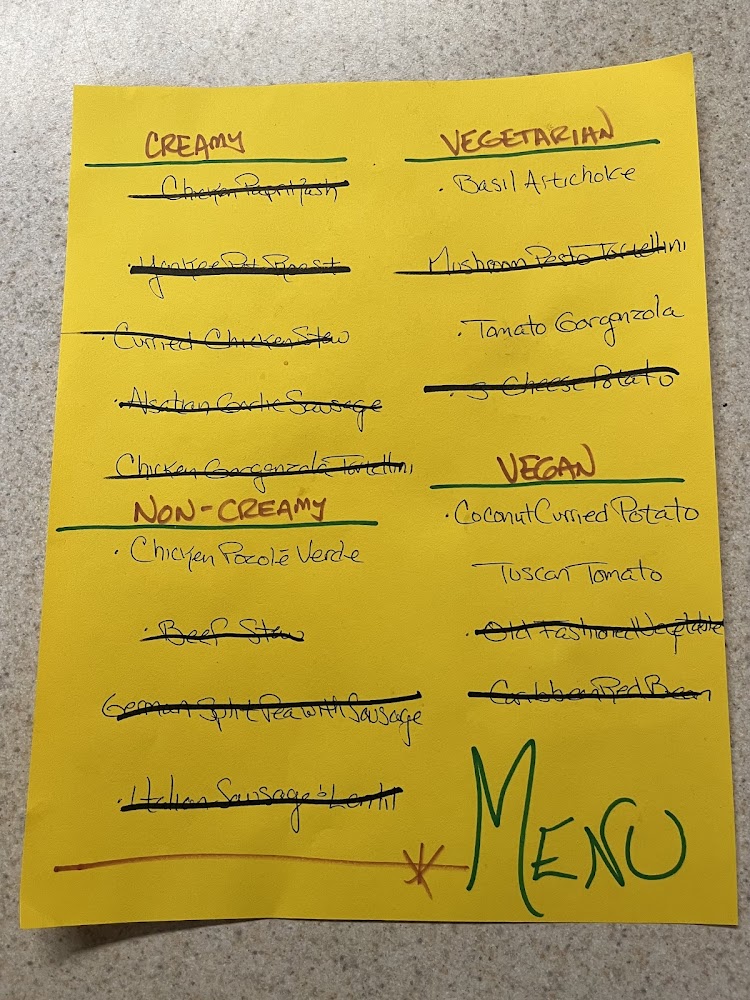 CREAMY
Chicken Paprikash
· Yankee Pot Roast
· Curried Chicken Stew
· Alsatian Garlic Sausage
Chicken Gorgonzola Tortellini
NON-CREAMY
· Chicken Pozolé Verde
· Beef Stew
German Split Pea with Sausage
· Italian Sausage & Lentil
VEGETARIAN
· Basil Artichoke
Mushroom Pesto Tortellini
· Tomato Gorgonzola
· 3 Cheese Potato
VEGAN
· Coconut Curried Potato
Tuscan Tomato
· Old Fashioned Vegetable
· Caribbean Red Bean
MENU